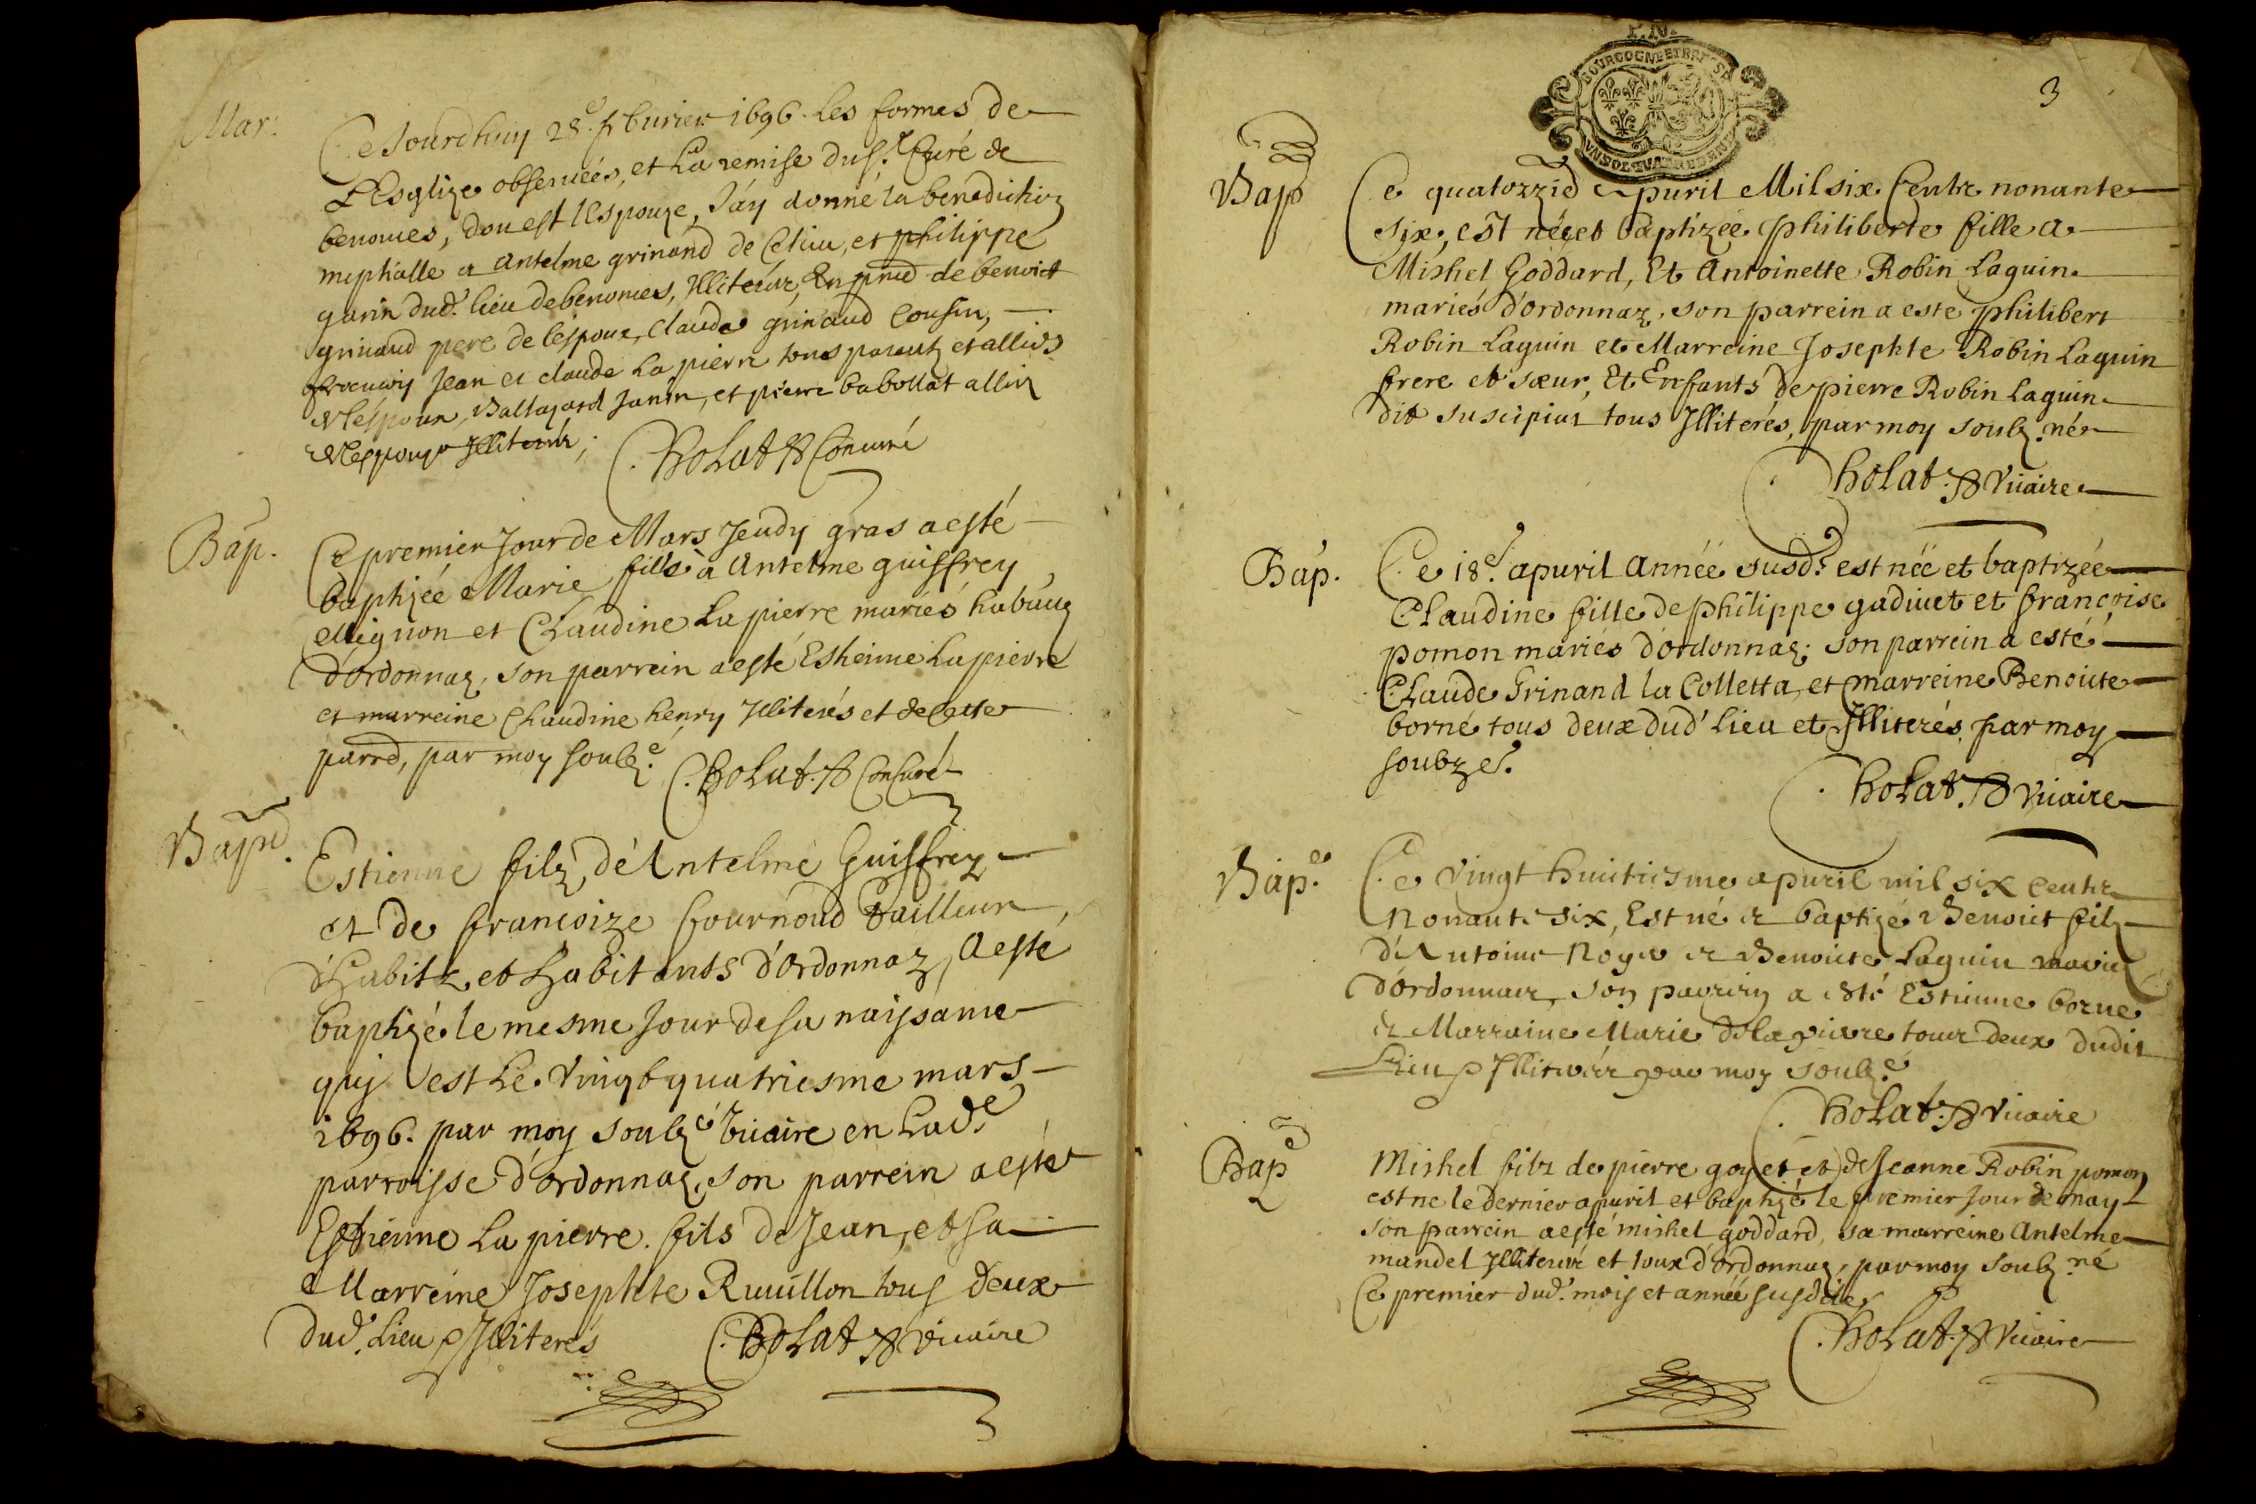 Mar.
Ce Jourdhuy 28.e fburier 1696. les formes de
L'Esglize obseruées, et La remise du s.r Curé de
benonces, dou est l'Espouze, J'ay donné la benediction
nuptialle a Antelme grinand de Ce lieu, et philippe
garin dud. lieu de benonces, Illiterez, En prnce de benoict
grinand pere de l'espoux, Claude grinand Cousin,
Jean et claude La pierre tous parentz et alliés
de l'espoux, Baltazard Janin, et pierre babollat alliez
de l'espouze Illiterés; C. hoLat Conuiré
Bap.
Ce premier Jour de Mars Jeudy gras a esté
baptizée Marie fille à Antelme guiffrey
Mignon et CLaudine La pierre mariés habâns
d'ordonnaz, son parrein a esté Estienne La pierre
et marreine CLaudine henry Illiterés et de Cette
parr.d, par moy soubz.e C. hoLat. ConCuré
Bapte.
Estienne filz d'Antelme Guiffrey
et de françoize fournoud Tailleur
d'habitz et habitants d'Ordonnaz, a esté
baptizé le mesme Jour de sa naissance
quj est Le Vingt quatriesme mars
1696. par moy soubz.é viccaire en Lad.e
parroisse d'ordonnaz, son parrein a esté
Estienne La pierre. fils de Jean, et sa
Marreine Josephte Ruuillon tous deux
dud. Lieu Illiterés C. hoLat Vicaire
BOURGOGNE ET BRESSE
3
Bap
Ce quatorzie apuril Mil six Centz nonante
six, est née et baptizée Philiberte fille a
Mishel Goddard, Et Antoinette Robin Laguin
mariés d'ordonnaz, son parrein a este philibert
Robin Laguin et Marreine Josephte Robin Laguin
frere et sœur, Et Enfants de pierre Robin Laguin
dit suscipiat tous Illiterés, par moy soubz.né
C. hoLat. Vicaire
Bap.
Ce 18.e apuril Année susd.e est née et baptizée
CLaudine fille de philippe gadiuet et françoise
pomon mariés d'ordonnaz; son parrein a esté
CLaude Grinand la Colletta, et marreine Benoite
borne tous deux dud' Lieu et Illiterés, par moy
soubze.
C. hoLat. Vicaire
Bap.e
Ce Vingt huictiesme apuril mil six centz
Nonante six, Est né et baptizé Benoict filz
d'Antoine Noyer et Benoite Laguin mariez
d'ordonnaz, son parrin a esté Estienne borne
et Marraine Marie De La pierre touz deux dudit
Lieu Illiteréz par moy soubz.é
C. hoLat. Vicaire
Bap.e
Mishel filz de pierre goyet et de Jeanne Robin pomon
est ne le dernier apuril et baptizé le premier Jour de may
son parrein a esté mishel goddard, sa marreine Antelme
mandel Illiterez et toux d'ordonnaz, par moy soubz.né
Ce premier dud. mois et année susdite
C. hoLat. Vicaire